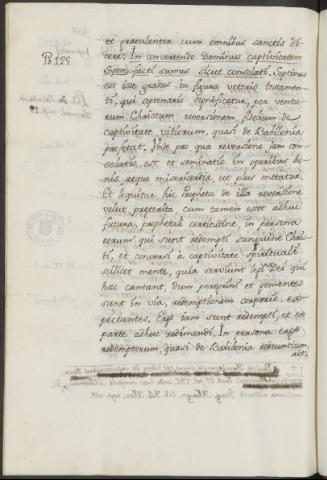 et gratulanter cum omnibus sanctis di-
cens. In convertendo Dominus captivitatem
Ps 125
Syon, facti sumus sicut consolati. Septimus
est iste gradus in figura veteris testamen-
ti, qui septenario significatur, per ventu-
rum Christum reversionem fidelium de
captivitate vitiorum, quasi de Babilonia
profetat. Unde pro qua reversione jam con-
solatio est et seminatio in operibus bo-
nis, atque misericordiis, ut plus metatur.
Et loquitur hic Propheta de illa reversione
velut preterita cum tamen esset adhuc
futura, prophetali certitudine, in persona
eorum qui sunt redempti sanguine Chris-
ti, et conversi a captivitate spirituali
scilicet mente, quia serviunt legi Dei qui
hec cantant, dum peregrini et gementes
sunt in via, redemptionem corporis ex-
pectantes. Ergo iam sunt redempti, et ex
parte adhuc redimendi. In persona ergo
redemptorum, quasi de Babilonia redeuntium,
ait,